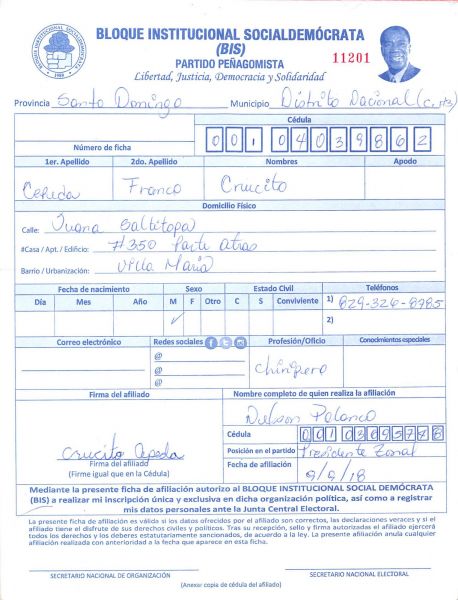 BLOQUE INSTITUCIONAL SOCIALDEMÓCRATA
(BIS)
PARTIDO PEÑAGOMISTA
11201
Libertad, Justicia, Democracia y Solidaridad
BLOQUE INSTITUCIONAL SOCIALDEMOCRATA
Provincia Santo Domingo Municipio Distrito Nacional
Cédula
Número de ficha 001 0403986 2
1er. Apellido 2do. Apellido Nombres Apodo
Cepeda Franco Crucito
Domicilio Físico
Calle: Juana Saltitopa
#Casa / Apt. / Edificio: #350 Parte atras
Barrio / Urbanización: Villa Maria
Fecha de nacimiento Sexo Estado Civil Teléfonos
Día Mes Año M F Otro C S Conviviente 1) 829-326-8985
2)
Correo electrónico Redes sociales Profesión/Oficio Conocimientos especiales
@
@ Chiripero
@
Firma del afiliado Nombre completo de quien realiza la afiliación
Nelson Polanco
Cédula
Crucito Cepeda Posición en el partido Presidente Zonal
Firma del afiliado Fecha de afiliación 9/9/18
(Firme igual que en la Cédula)
Mediante la presente ficha de afiliación autorizo al BLOQUE INSTITUCIONAL SOCIAL DEMÓCRATA
(BIS) a realizar mi inscripción única y exclusiva en dicha organización política, así como a registrar
mis datos personales ante la Junta Central Electoral.
La presente ficha de afiliación es válida si los datos ofrecidos por el afiliado son correctos, las declaraciones veraces y si el
afiliado tiene el disfrute de sus derechos civiles y políticos. Tras su recepción, sello y firma autorizadas el afiliado ejercerá
todos los derechos y los deberes estatutariamente sancionados, de acuerdo a la ley. La presente afiliación anula cualquier
afiliación realizada con anterioridad a la fecha que aparece en esta ficha.
SECRETARIO NACIONAL DE ORGANIZACIÓN SECRETARIO NACIONAL ELECTORAL
(Anexar copia de cédula del afiliado)